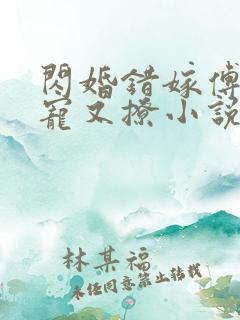 閃婚錯嫁傅
寵又撩小説
林某福
未经同意禁止转载